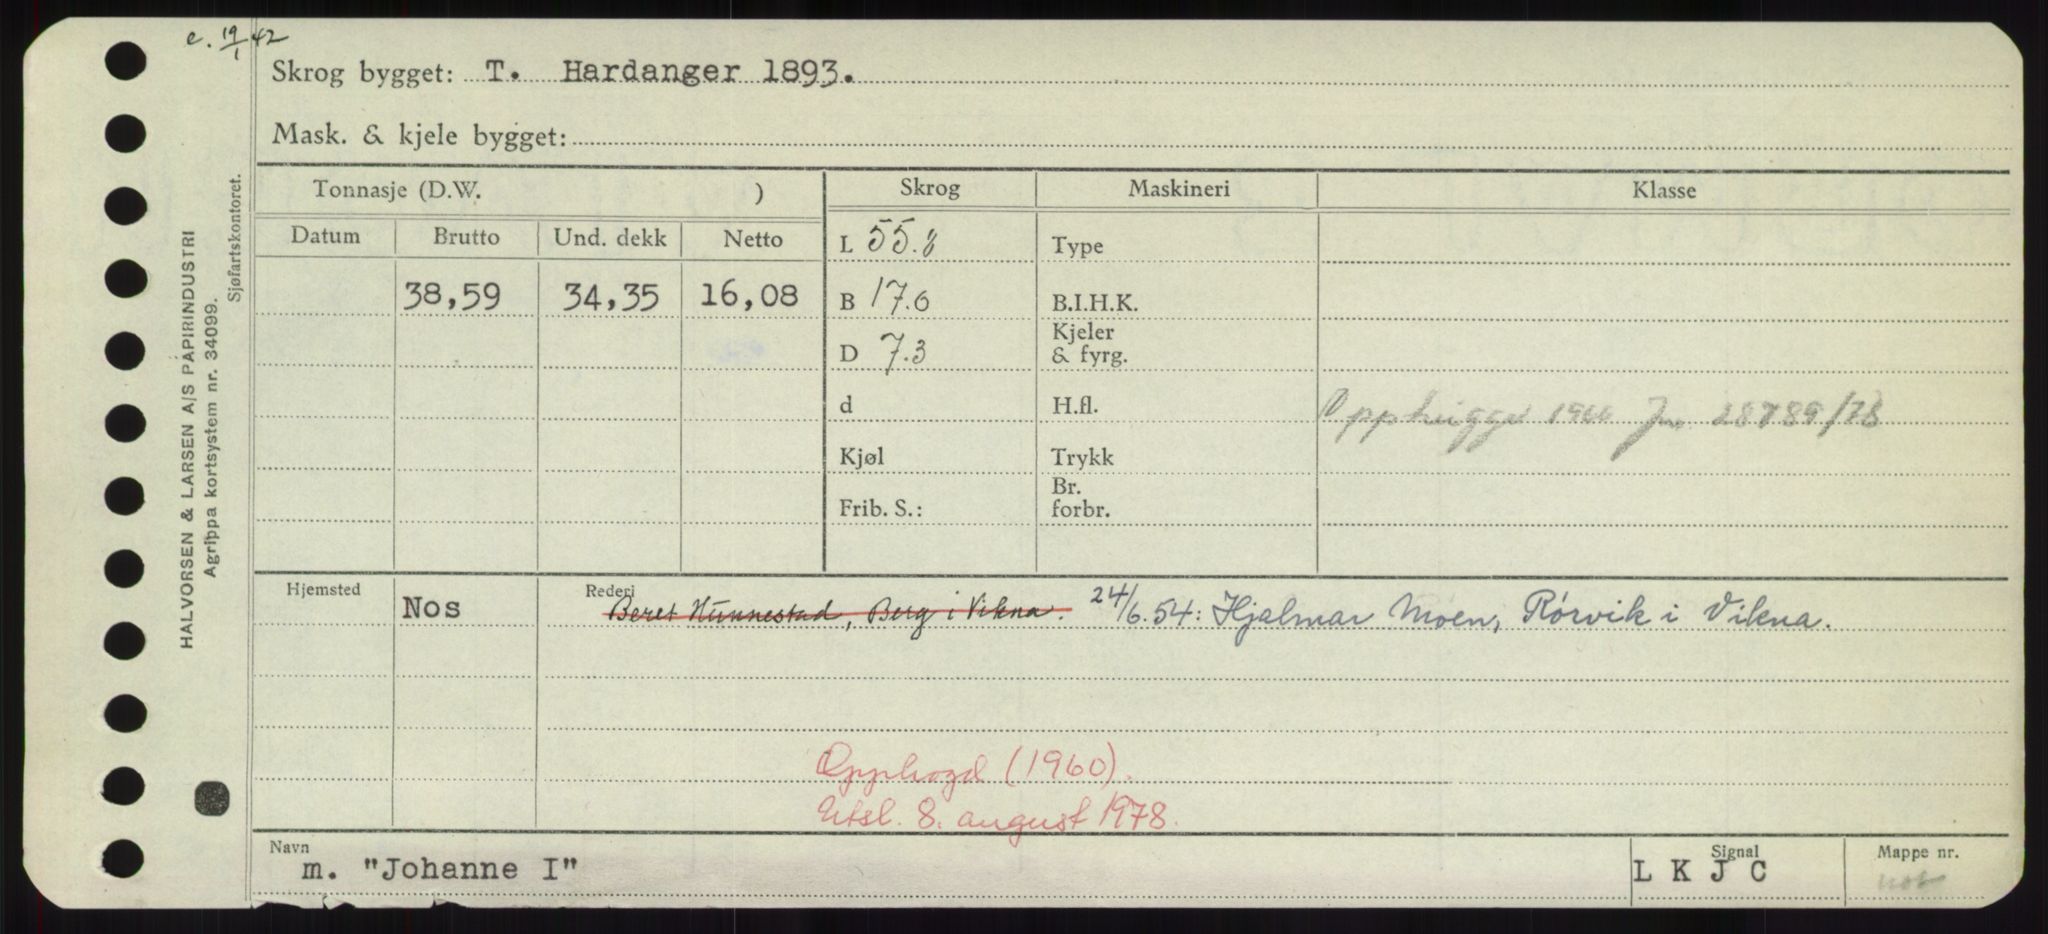 c. 19/1 42
Skrog bygget: T. Hardanger 1893.
Mask. & kjele bygget:
Tonnasje (D.W. ) Skrog Maskineri Klasse
Datum Brutto Und. dekk Netto L 55.8 Type
38,59 34,35 16,08 B 17.6 B.I.H.K.
D 7.3 Kjeler & fyrg.
d H.fl. Opphugget 1960 Jnr 28789/78
Kjøl Trykk
Frib. S.: Br. forbr.
Hjemsted Nos Rederi Beret Hunnestad, Berg i Vikna. 24/6.54: Hjalmar Moen, Rørvik i Vikna.
Opphogd (1960).
Utsl. 8. august 1978.
Navn m. "Johanne I" Signal L K J C Mappe nr.
HALVORSEN & LARSEN A/S PAPIRINDUSTRI
Agrippa kortsystem nr. 34099.
Sjøfartskontoret.